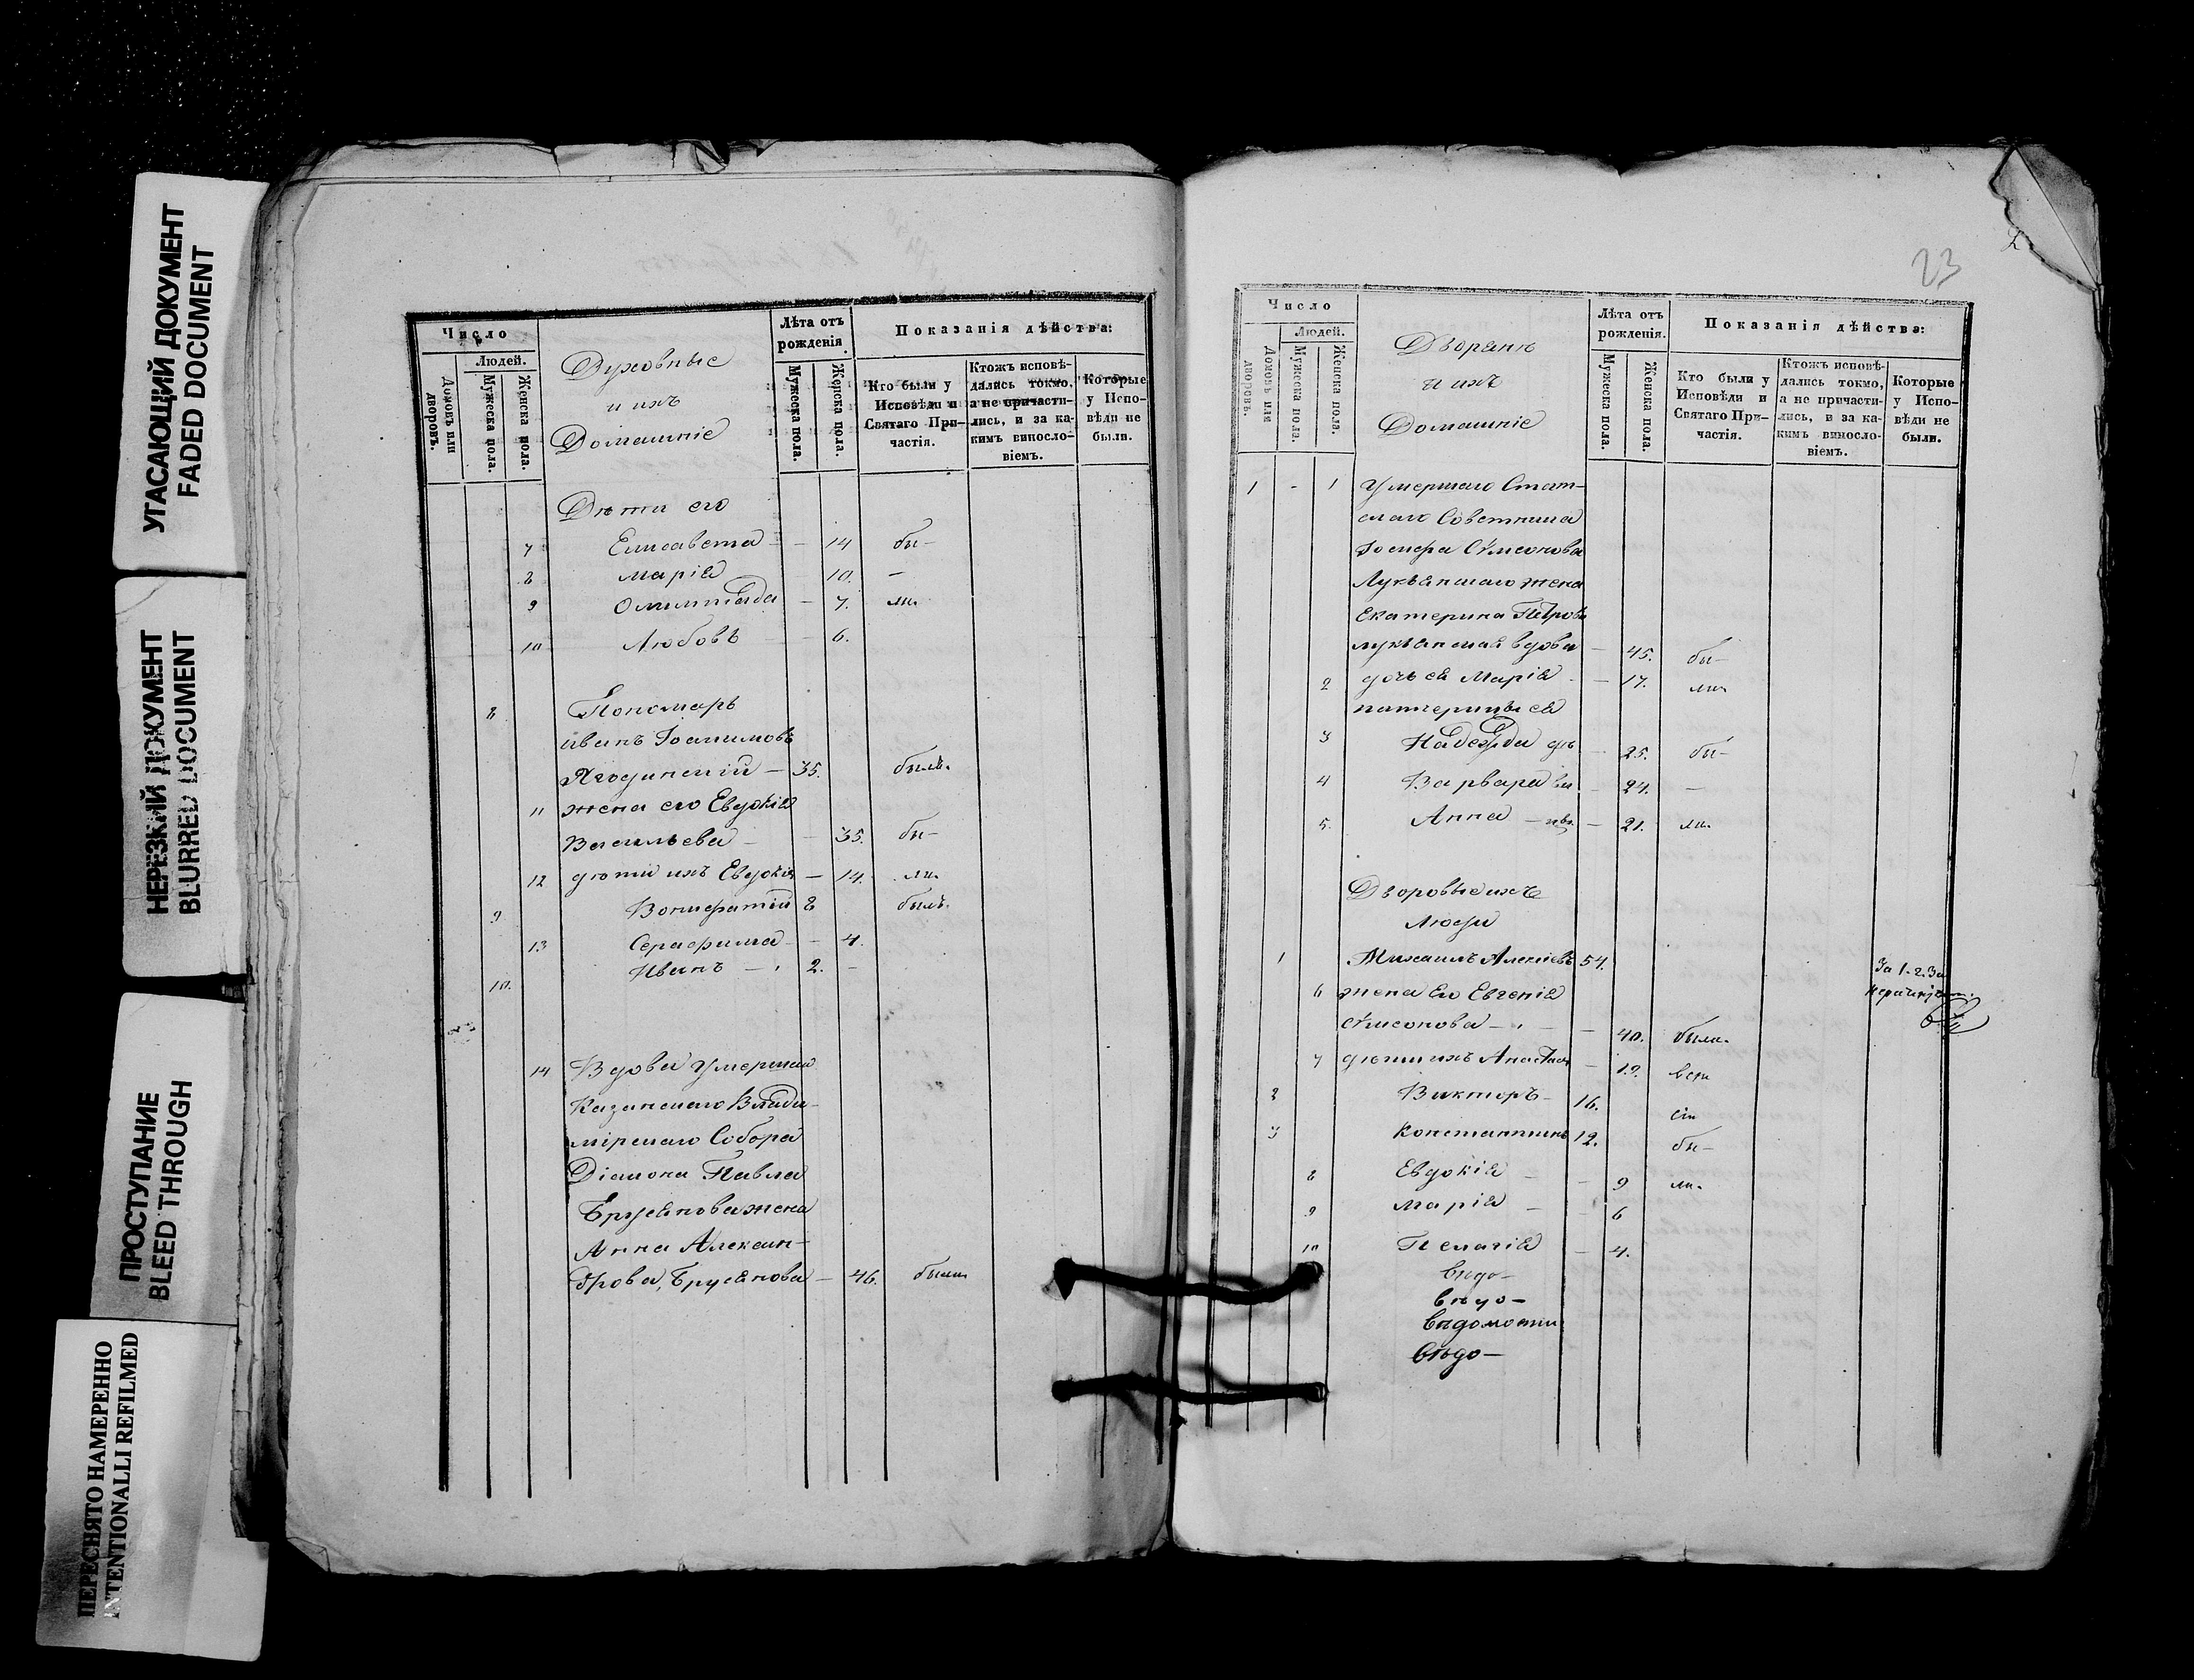 УГАСАЮЩИЙ ДОКУМЕНТ
FADED DOCUMENT
НЕРЕЗКИЙ ДОКУМЕНТ
BLURRED DOCUMENT
ПРОСТУПАНИЕ
BLEED THROUGH
ПЕРЕСНЯТО НАМЕРЕННО
INTENTIONALLI REFILMED
Число
Людей.
Домовъ или дворовъ.
Мужеска пола.
Женска пола.
Духовные
и ихъ
Домашніе
Лѣта отъ рожденія.
Мужеска пола.
Женска пола.
Показанія дѣйства:
Кто были у Исповѣди и Святаго При-частія.
Ктожъ исповѣ-дались токмо, а не причасти-лись, и за ка-кимъ винословіемъ.
Которые у Испо-вѣди не были.
Дѣти его
7 Елисавета — 14 бы-
8 Марія 10. —
9 Олимпіада — 7. ли.
10 Любовь — 6.
8 Пономарь
Иванъ Іоакимовъ
Ягодинскій — 35. былъ.
11 жена его Евдокія
Васильева — 35. бы-
12 дѣти ихъ Евдокія — 14. ли.
9 Вонифатій 8 былъ.
13 Серафима — 4.
10. Иванъ — 2. —
14 Вдова Умершаго
Казанскаго Влади-
мірскаго Собора
Діакона Павла
Брусянова жена
Анна Алексан-
дрова, Брусянова — 46. была
23
Число
Людей.
Домовъ или дворовъ.
Мужеска пола.
Женска пола.
Дворяне
и ихъ
Домашніе
Лѣта отъ рожденія.
Мужеска пола.
Женска пола.
Показанія дѣйства:
Кто были у Исповѣди и Святаго При-частія.
Ктожъ исповѣ-дались токмо, а не причасти-лись, и за ка-кимъ винословіемъ.
Которые у Испо-вѣди не были.
1 - 1 Умершаго Стат-
скаго Советника
Іосифа Сѵмеонова
Лукьянскаго жена
Екатерина Петрова
Лукьянская вдова — 45. бы-
2 дочь ея Марія — 17. ли.
патчерицы ея
3 Надежда — 25. бы-
4 Варвара — 24. —
5. Анна — 21. ли.
Дворовые ихъ
люди
1 Михаилъ Алексіевъ 54.
За 1. 2. 3
6 жена Его Евгенія
Сѵмеонова — 40. была.
7 дѣти ихъ Анастасія — 19. всѣ
2 Викторъ — 16. сіи
3 Константинъ 12. бы-
8 Евдокія — 9 ли.
9 Марія — 6
10 Пелагія — 4.
Вѣдо-
вѣдо-
Вѣдомости
Вѣдо-